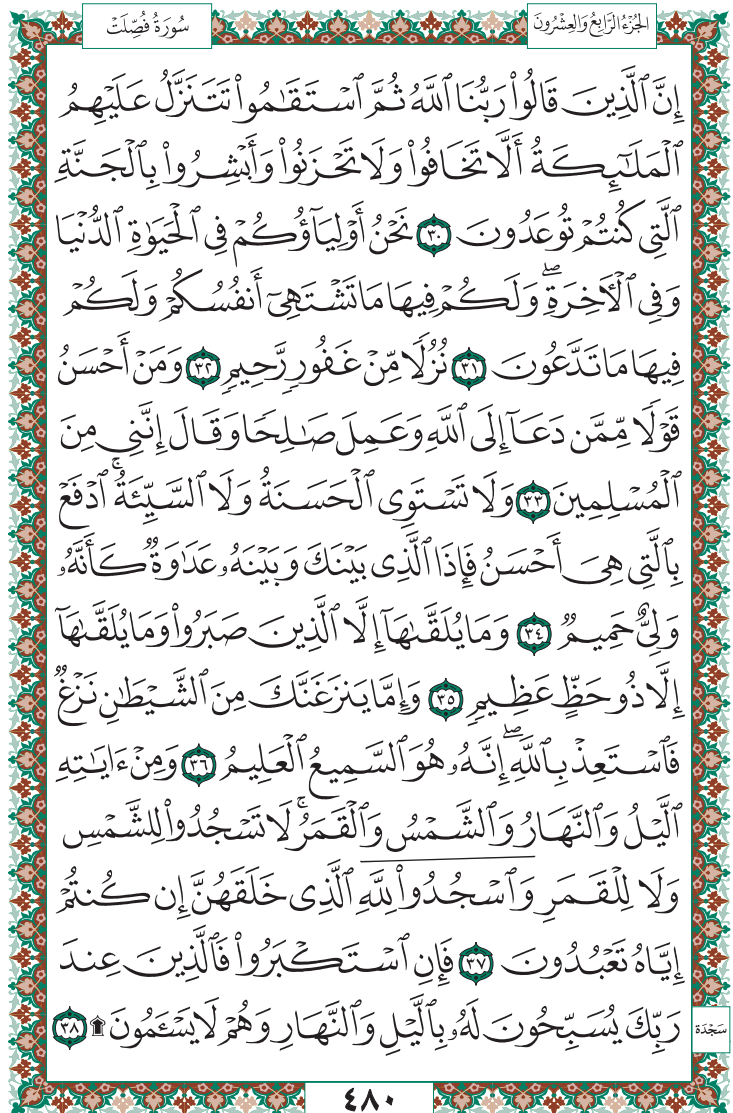 الجُزْءُ الرَّابِعُ وَالعِشْرُونَ
سُورَةُ فُصِّلَتْ
إِنَّ ٱلَّذِينَ قَالُوا۟ رَبُّنَا ٱللَّهُ ثُمَّ ٱسْتَقَٰمُوا۟ تَتَنَزَّلُ عَلَيْهِمُ
ٱلْمَلَٰٓئِكَةُ أَلَّا تَخَافُوا۟ وَلَا تَحْزَنُوا۟ وَأَبْشِرُوا۟ بِٱلْجَنَّةِ
ٱلَّتِى كُنتُمْ تُوعَدُونَ ٣٠ نَحْنُ أَوْلِيَآؤُكُمْ فِى ٱلْحَيَوٰةِ ٱلدُّنْيَا
وَفِى ٱلْـَٔاخِرَةِ ۖ وَلَكُمْ فِيهَا مَا تَشْتَهِىٓ أَنفُسُكُمْ وَلَكُمْ
فِيهَا مَا تَدَّعُونَ ٣١ نُزُلًا مِّنْ غَفُورٍ رَّحِيمٍ ٣٢ وَمَنْ أَحْسَنُ
قَوْلًا مِّمَّن دَعَآ إِلَى ٱللَّهِ وَعَمِلَ صَٰلِحًا وَقَالَ إِنَّنِى مِنَ
ٱلْمُسْلِمِينَ ٣٣ وَلَا تَسْتَوِى ٱلْحَسَنَةُ وَلَا ٱلسَّيِّئَةُ ۚ ٱدْفَعْ
بِٱلَّتِى هِىَ أَحْسَنُ فَإِذَا ٱلَّذِى بَيْنَكَ وَبَيْنَهُۥ عَدَٰوَةٌ كَأَنَّهُۥ
وَلِىٌّ حَمِيمٌ ٣٤ وَمَا يُلَقَّىٰهَآ إِلَّا ٱلَّذِينَ صَبَرُوا۟ وَمَا يُلَقَّىٰهَآ
إِلَّا ذُو حَظٍّ عَظِيمٍ ٣٥ وَإِمَّا يَنزَغَنَّكَ مِنَ ٱلشَّيْطَٰنِ نَزْغٌ
فَٱسْتَعِذْ بِٱللَّهِ ۖ إِنَّهُۥ هُوَ ٱلسَّمِيعُ ٱلْعَلِيمُ ٣٦ وَمِنْ ءَايَٰتِهِ
ٱلَّيْلُ وَٱلنَّهَارُ وَٱلشَّمْسُ وَٱلْقَمَرُ ۚ لَا تَسْجُدُوا۟ لِلشَّمْسِ
وَلَا لِلْقَمَرِ وَٱسْجُدُوا۟ لِلَّهِ ٱلَّذِى خَلَقَهُنَّ إِن كُنتُمْ
إِيَّاهُ تَعْبُدُونَ ٣٧ فَإِنِ ٱسْتَكْبَرُوا۟ فَٱلَّذِينَ عِندَ
رَبِّكَ يُسَبِّحُونَ لَهُۥ بِٱلَّيْلِ وَٱلنَّهَارِ وَهُمْ لَا يَسْـَٔمُونَ ۩ ٣٨
سَجْدَة
٤٨٠